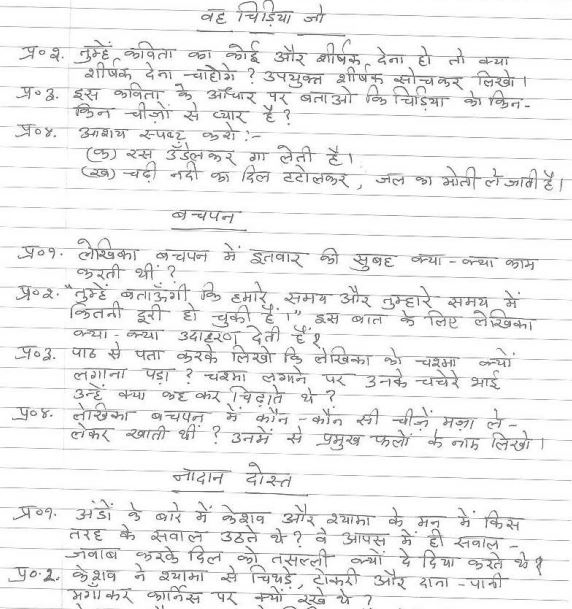 वह चिड़िया जो
प्र०२. तुम्हें कविता का कोई और शीर्षक देना हो तो क्या
शीर्षक देना चाहोगे ? उपयुक्त शीर्षक सोचकर लिखो।
प्र०३. इस कविता के आधार पर बताओ कि चिड़िया को किन-
किन चीज़ों से प्यार है ?
प्र०४. आशय स्पष्ट करो :-
(क) रस उँडेलकर गा लेती है।
(ख) चढ़ी नदी का दिल टटोलकर, जल का मोती ले जाती है।
बचपन
प्र०१. लेखिका बचपन में इतवार की सुबह क्या-क्या काम
करती थीं ?
प्र०२. "तुम्हें बताऊँगी कि हमारे समय और तुम्हारे समय में
कितनी दूरी हो चुकी है।" इस बात के लिए लेखिका
क्या-क्या उदाहरण देती हैं ?
प्र०३. पाठ से पता करके लिखो कि लेखिका को चश्मा क्यों
लगाना पड़ा ? चश्मा लगाने पर उनके चचेरे भाई
उन्हें क्या कह कर चिढ़ाते थे ?
प्र०४. लेखिका बचपन में कौन-कौन सी चीज़ें मज़ा ले-
लेकर खाती थीं ? उनमें से प्रमुख फलों के नाम लिखो।
नादान दोस्त
प्र०१. अंडों के बारे में केशव और श्यामा के मन में किस
तरह के सवाल उठते थे ? वे आपस में ही सवाल-
जवाब करके दिल को तसल्ली क्यों दे दिया करते थे ?
प्र०२. केशव ने श्यामा से चिथड़े, टोकरी और दाना-पानी
मँगाकर कार्निस पर क्यों रखे थे ?